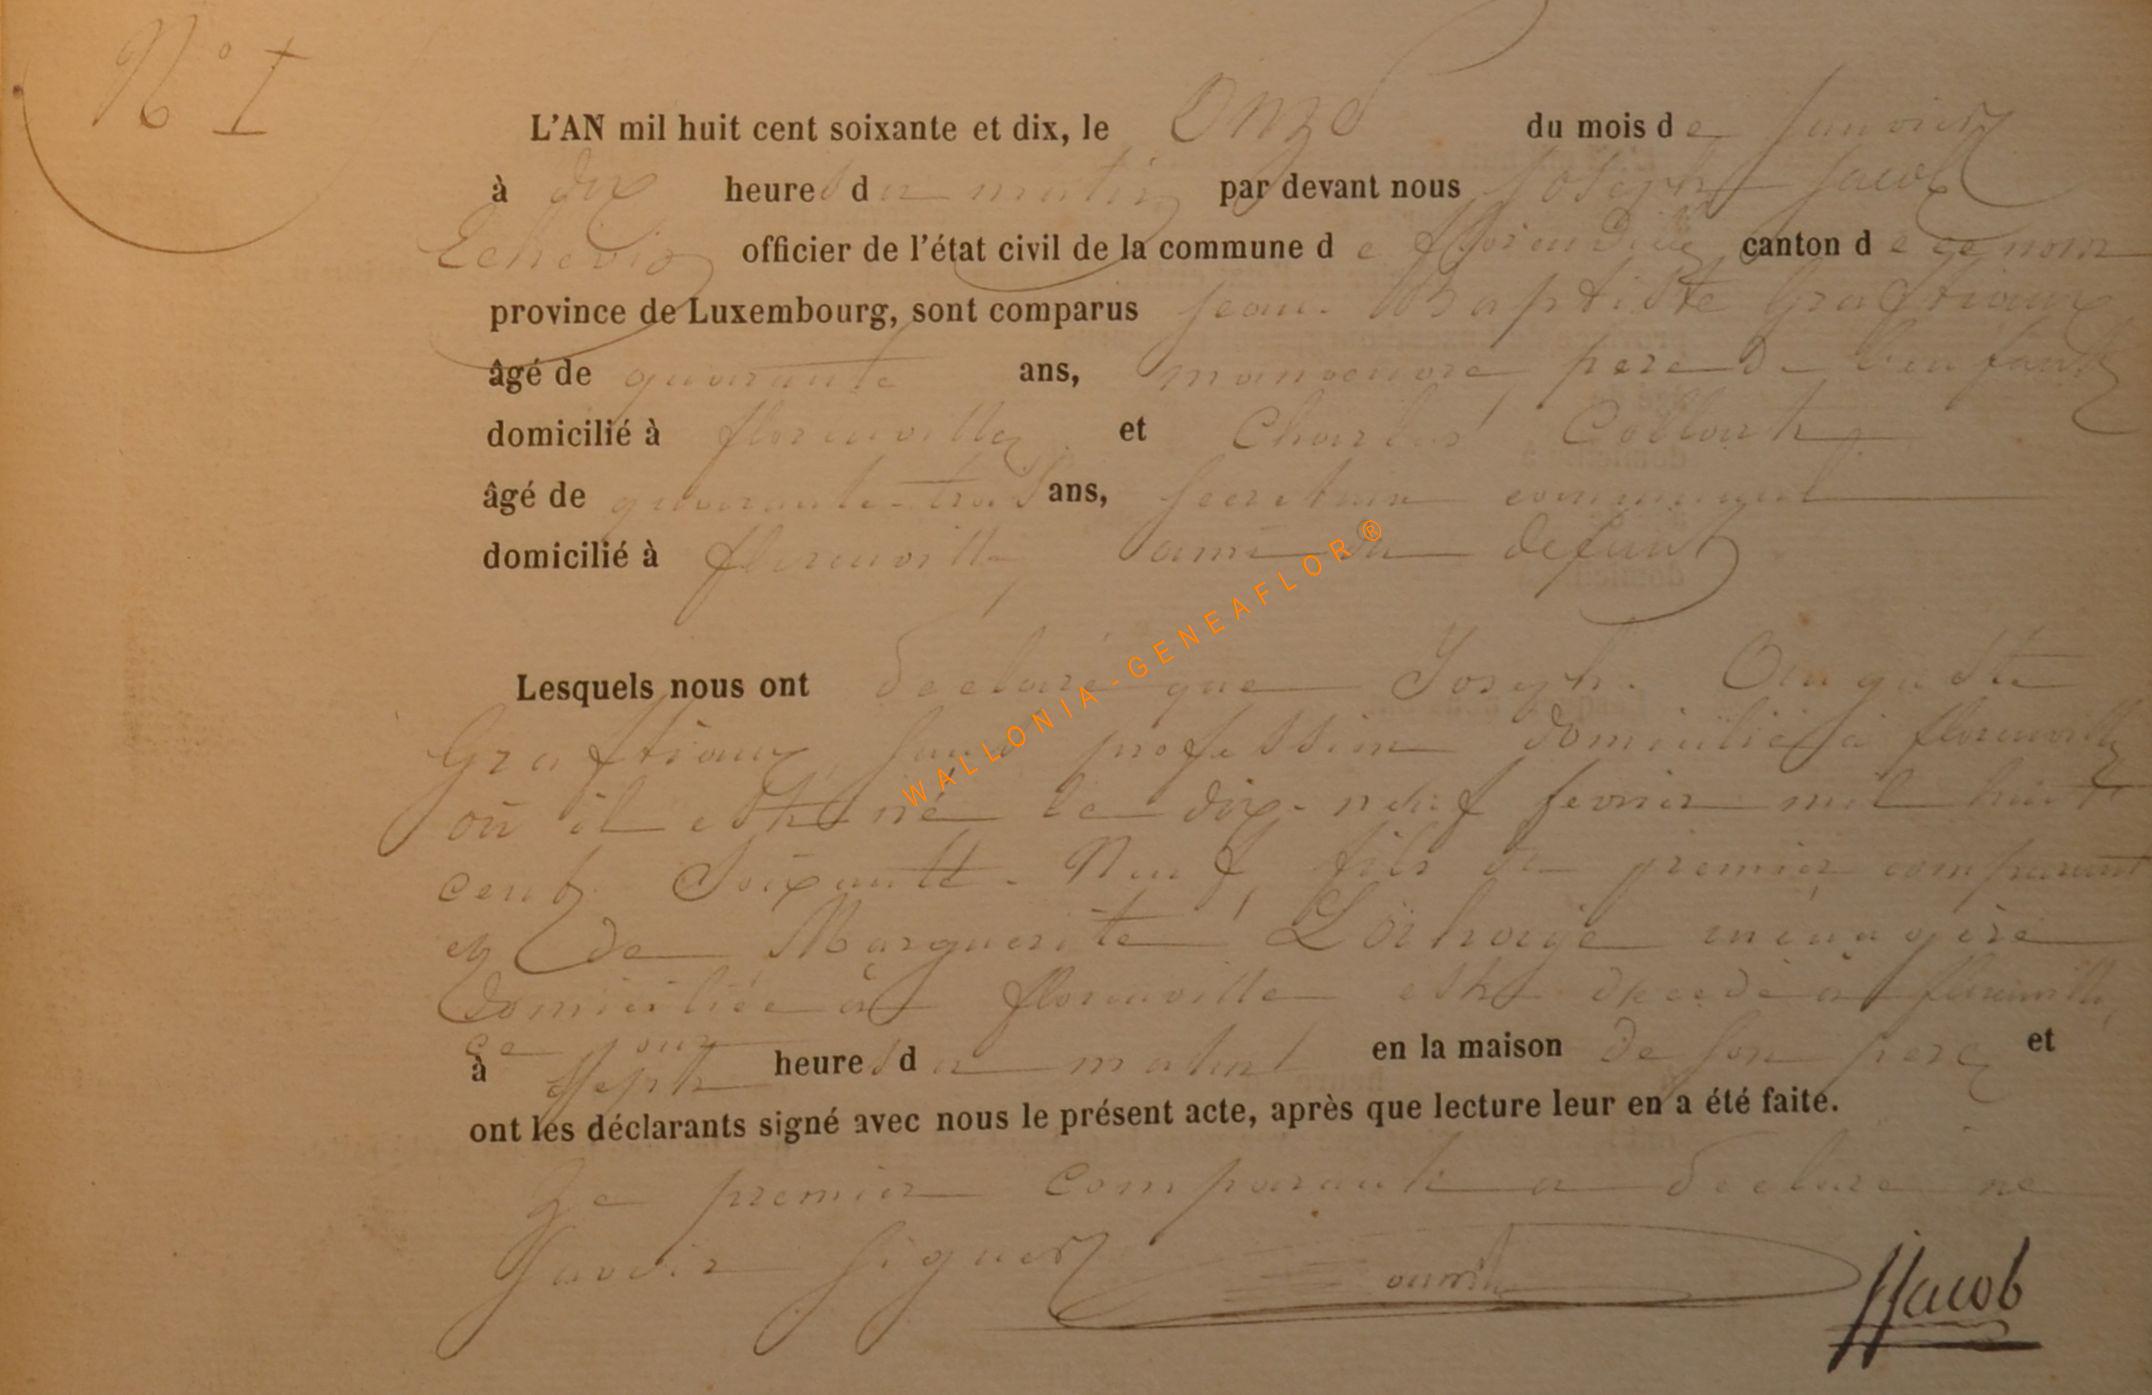 N° 1
L'AN mil huit cent soixante et dix, le Onze du mois de Janvier
à dix heures du matin par devant nous Joseph Jacob
Echevin officier de l'état civil de la commune de florenville canton de ce nom
province de Luxembourg, sont comparus Jean-Baptiste Graftiaux
âgé de quarante ans, manoeuvre, père de l'enfant
domicilié à florenville et Charles
âgé de quarante-trois ans, secretaire communal
domicilié à florenville ami du defunt
Lesquels nous ont declaré que Joseph Auguste
Graftiaux, sans profession domicilié à florenville
où il est né le dix-neuf fevrier mil huit
cent soixante-neuf, fils du premier comparant
et de Marguerite ménagère
domiciliée à florenville est décedé à florenville
ce jour
à sept heures du matin en la maison de son père et
ont les déclarants signé avec nous le présent acte, après que lecture leur en a été faite.
Le premier comparant a declaré ne
savoir signer
JJacob
WALLONIA-GENEAFLOR®